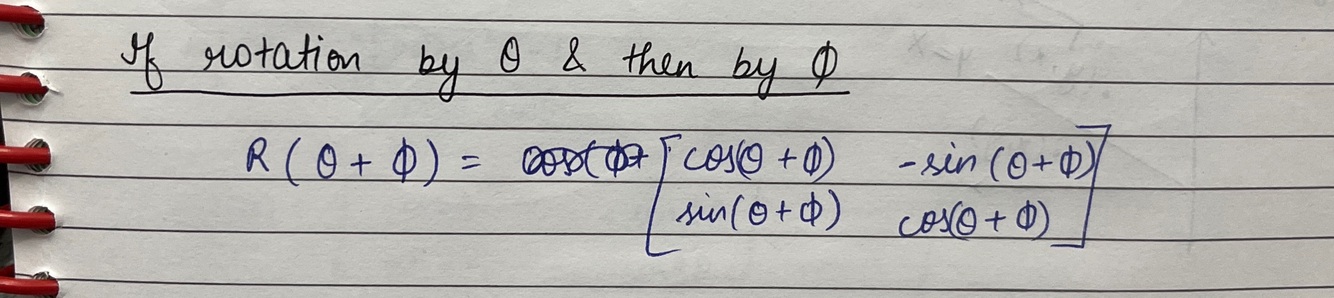 If rotation by θ & then by ϕ
R(θ + ϕ) = [cos(θ + ϕ) -sin(θ+ϕ)
sin(θ+ϕ) cos(θ+ϕ)]